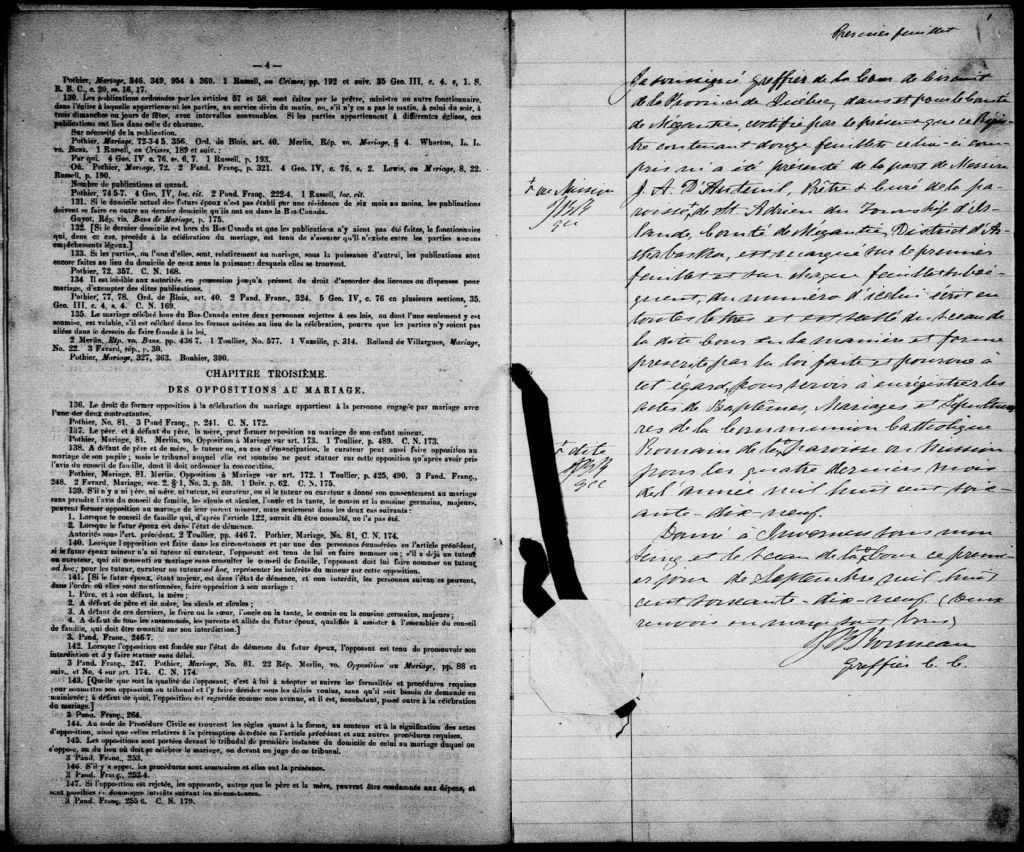 — 4 —
Pothier, Mariage, 346, 349, 954 à 360. 1 Russell, on Crimes, pp. 192 et suiv. 35 Geo. III, c. 4, s, 1. S.
R. B. C., c. 20, ss, 16, 17.
130. Les publications ordonnées par les articles 57 et 58, sont faites par le prêtre, ministre ou autre fonctionnaire,
dans l'église à laquelle appartiennent les parties, au service divin du matin, ou, s'il n'y en a pas le matin, à celui du soir, à
trois dimanches ou jours de fêtes, avec intervalles convenables. Si les parties appartiennent à différentes églises, ces
publications ont lieu dans celle de chacune.
Sur nécessité de la publication.
Pothier, Mariage, 72-3 4 5. 356. Ord. de Blois, art. 40. Merlin, Rép. vo. Mariage, § 4. Wharton, L. L.
vo. Bans. 1 Russell, on Crimes, 189 et suiv. :
Par qui. 4 Geo. IV, c. 76, s. 6, 7. 1 Russell, p. 193.
Où. Pothier, Mariage, 72. 2 Pand. Franç., p. 321. 4 Geo. IV, c. 76, s. 2. Lewis, on Mariage, 8, 22.
Russell, p. 190.
Nombre de publications et quand.
Pothier, 74 5-7. 4 Geo. IV, loc. cit. 2 Pand. Franç., 222-4. 1 Russell, loc. cit.
131. Si le domicile actuel des futurs époux n'est pas établi par une résidence de six mois au moins, les publications
doivent se faire en outre au dernier domicile qu'ils ont eu dans le Bas-Canada.
Guyot, Rép. vis. Bans de Mariage, p. 175.
132. [Si le dernier domicile est hors du Bas-Canada et que les publications n'y aient pas été faites, le fonctionnaire
qui, dans ce cas, procède à la célébration du mariage, est tenu de s'assurer qu'il n'existe entre les parties aucuns
empêchements légaux.]
133. Si les parties, ou l'une d'elles, sont, relativement au mariage, sous la puissance d'autrui, les publications sont
encore faites au lieu du domicile de ceux sous la puissance desquels elles se trouvent.
Pothier, 72, 357. C. N. 168.
134 Il est loisible aux autorités en possession jusqu'à présent du droit d'accorder des licences ou dispenses pour
mariage, d'exempter des dites publications.
Pothier, 77, 78. Ord. de Blois, art. 40. 2 Pand. Franç., 324. 5 Geo. IV, c. 76 en plusieurs sections, 35,
Geo. III, c. 4, s. 4. C. N. 169.
135. Le mariage célébré hors du Bas-Canada entre deux personnes sujettes à ses lois, ou dont l'une seulement y est
soumise, est valable, s'il est célébré dans les formes usitées au lieu de la célébration, pourvu que les parties n'y soient pas
allées dans le dessein de faire fraude à la loi.
2 Merlin, Rép. vo. Bans. pp. 436 7. 1 Toullier, No. 577. 1 Vazeille, p. 314. Rolland de Villargues, Mariage,
No. 22. 3 Favard, rép., p. 30.
Pothier, Mariage, 327, 363. Bouhier, 390.
CHAPITRE TROISIÈME.
DES OPPOSITIONS AU MARIAGE.
136. Le droit de former opposition à la célébration du mariage appartient à la personne engagée par mariage avec
l'une des deux contractantes.
Pothier, No. 81. 3 Pand Franç., p. 241. C. N. 172.
137. Le père, et à défaut du père, la mère, peut former opposition au mariage de son enfant mineur.
Pothier, Mariage, 81. Merlin, vo. Opposition à Mariage sur art. 173. 1 Toullier, p. 489. C. N. 173.
138. A défaut de père et de mère, le tuteur ou, au cas d'émancipation, le curateur peut aussi faire opposition au
mariage de son pupille; mais le tribunal auquel elle est soumise ne peut statuer sur cette opposition qu'après avoir pris
l'avis du conseil de famille, dont il doit ordonner la convocation.
Pothier, Mariage, 81. Merlin, Opposition à Mariage sur art. 172. 1 Toullier, p. 425, 490. 3 Pand. Franç.,
248. 2 Favard, Mariage, sec. 2, § 1, No. 3, p. 59. 1 Delv. p. 62. C. N. 175.
139. S'il n'y a ni père, ni mère, ni tuteur, ni curateur, ou si le tuteur ou curateur a donné son consentement au mariage
sans prendre l'avis du conseil de famille, les aïeuls et aïeules, l'oncle et la tante, le cousin et la cousine germains, majeurs,
peuvent former opposition au mariage de leur parent mineur, mais seulement dans les deux cas suivants :
1. Lorsque le conseil de famille qui, d'après l'article 122, aurait dû être consulté, ne l'a pas été.
2. Lorsque le futur époux est dans l'état de démence.
Autorités sous l'art. précédent. 2 Toullier, pp. 446 7. Pothier, Mariage, No. 81, C. N. 174.
140. Lorsque l'opposition est faite dans les circonstances et par une des personnes énumérées en l'article précédent,
si le futur époux mineur n'a ni tuteur ni curateur, l'opposant est tenu de lui en faire nommer un; s'il a déjà un tuteur
ou curateur, qui ait consenti au mariage sans consulter le conseil de famille, l'opposant doit lui faire nommer un tuteur
ad hoc; pour les tuteur, curateur ou tuteur ad hoc, représenter les intérêts du mineur sur cette opposition.
141. [Si le futur époux, étant majeur, est dans l'état de démence, et non interdit, les personnes suivantes peuvent,
dans l'ordre où elles sont mentionnées, faire opposition à son mariage :
1. Père, et à son défaut, la mère;
2. A défaut de père et de mère, les aïeuls et aïeules;
3. A défaut de ces derniers, le frère ou la sœur, l'oncle ou la tante, le cousin ou la cousine germains, majeurs;
4. A défaut de tous les susnommés, les parents et alliés du futur époux, qualifiés à assister à l'assemblée du conseil
de famille, qui doit être consulté sur son interdiction.]
3. Pand. Franç., 246-7.
142. Lorsque l'opposition est fondée sur l'état de démence du futur époux, l'opposant est tenu de promouvoir son
interdiction et d'y faire statuer sans délai.
3 Pand. Franç., 247. Pothier, Mariage, No. 81. 22 Rép. Merlin, vo. Opposition au Mariage, pp. 88 et
suiv., et No. 4 sur art. 174. C. N. 174.
143. [Quelle que soit la qualité de l'opposant, c'est à lui à adopter et suivre les formalités et procédures requises
pour soumettre son opposition au tribunal et l'y faire décider sous les délais voulus, sans qu'il soit besoin de demande en
mainlevée; à défaut de quoi, l'opposition est regardée comme non avenue, et il est, nonobstant, passé outre à la célébration
du mariage.]
3 Pand. Franç., 264.
144. Au code de Procédure Civile se trouvent les règles quant à la forme, au contenu et à la signification des actes
d'opposition, ainsi que celles relatives à la péremption décrétée en l'article précédent et aux autres procédures requises.
145. Les oppositions sont portées devant le tribunal de première instance du domicile de celui au mariage duquel on
s'oppose, ou du lieu où doit se célébrer le mariage, ou devant un juge de ce tribunal.
3 Pand. Franc., 253.
146. S'il y a appel, les procédures sont sommaires et elles ont la préséance.
3 Pand. Franç., 253-4.
147. Si l'opposition est rejetée, les opposants, autres que le père et la mère, peuvent être condamnés aux dépens, et
sont passibles de dommages-intérêts suivant les circonstances.
3 Pand. Franç. 255 6. C. N. 179.
1
Premier feuillet
Je soussigné Greffier de la Cour de Circuit
de la Province de Québec, dans et pour le Comté
de Mégantic, certifie par le présent que ce Régis-
tre contenant douze feuillets celui-ci com-
pris m'a été présenté de la part de Messire
J. A. D'Auteuil, Prêtre & Curé de la pa-
roisse + de St. Adrien du Township d'Ir-
lande, Comté de Mégantic, District d'Ar-
thabaska, est marqué sur le premier
feuillet et sur chaque feuillet subsé-
quent, du numéro d'icelui écrit en
toutes lettres et est scellé du sceau de
la dite Cour en la manière et forme
prescrite par la loi faite et pourvue à
cet égard, pour servir à enrégistrer les
actes de Baptêmes, Mariages et Sépultu-
res de la Communion Catholique
Romain de la + Paroisse ou Mission
pour les quatre derniers mois
de l'année mil huit cent soix-
ante-dix-neuf.
Donné à Inverness sous mon
seing et le sceau de la + Cour ce premi-
er jour de Septembre mil huit
cent soixante-dix-neuf (Deux
renvois en marge sont bons)
Greffier C. C.
+ ou Mission
+ dite